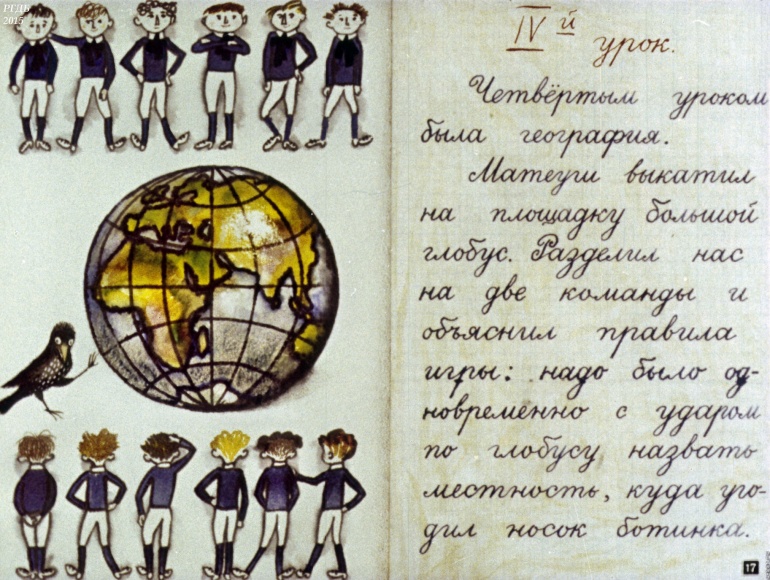 РГДБ
2015
IV й
урок.
Четвёртым уроком
была география.
Матеуш выкатил
на площадку большой
глобус. Разделил нас
на две команды и
объяснил правила
игры: надо было од-
новременно с ударом
по глобусу назвать
местность, куда уго-
дил носок ботинка.
17